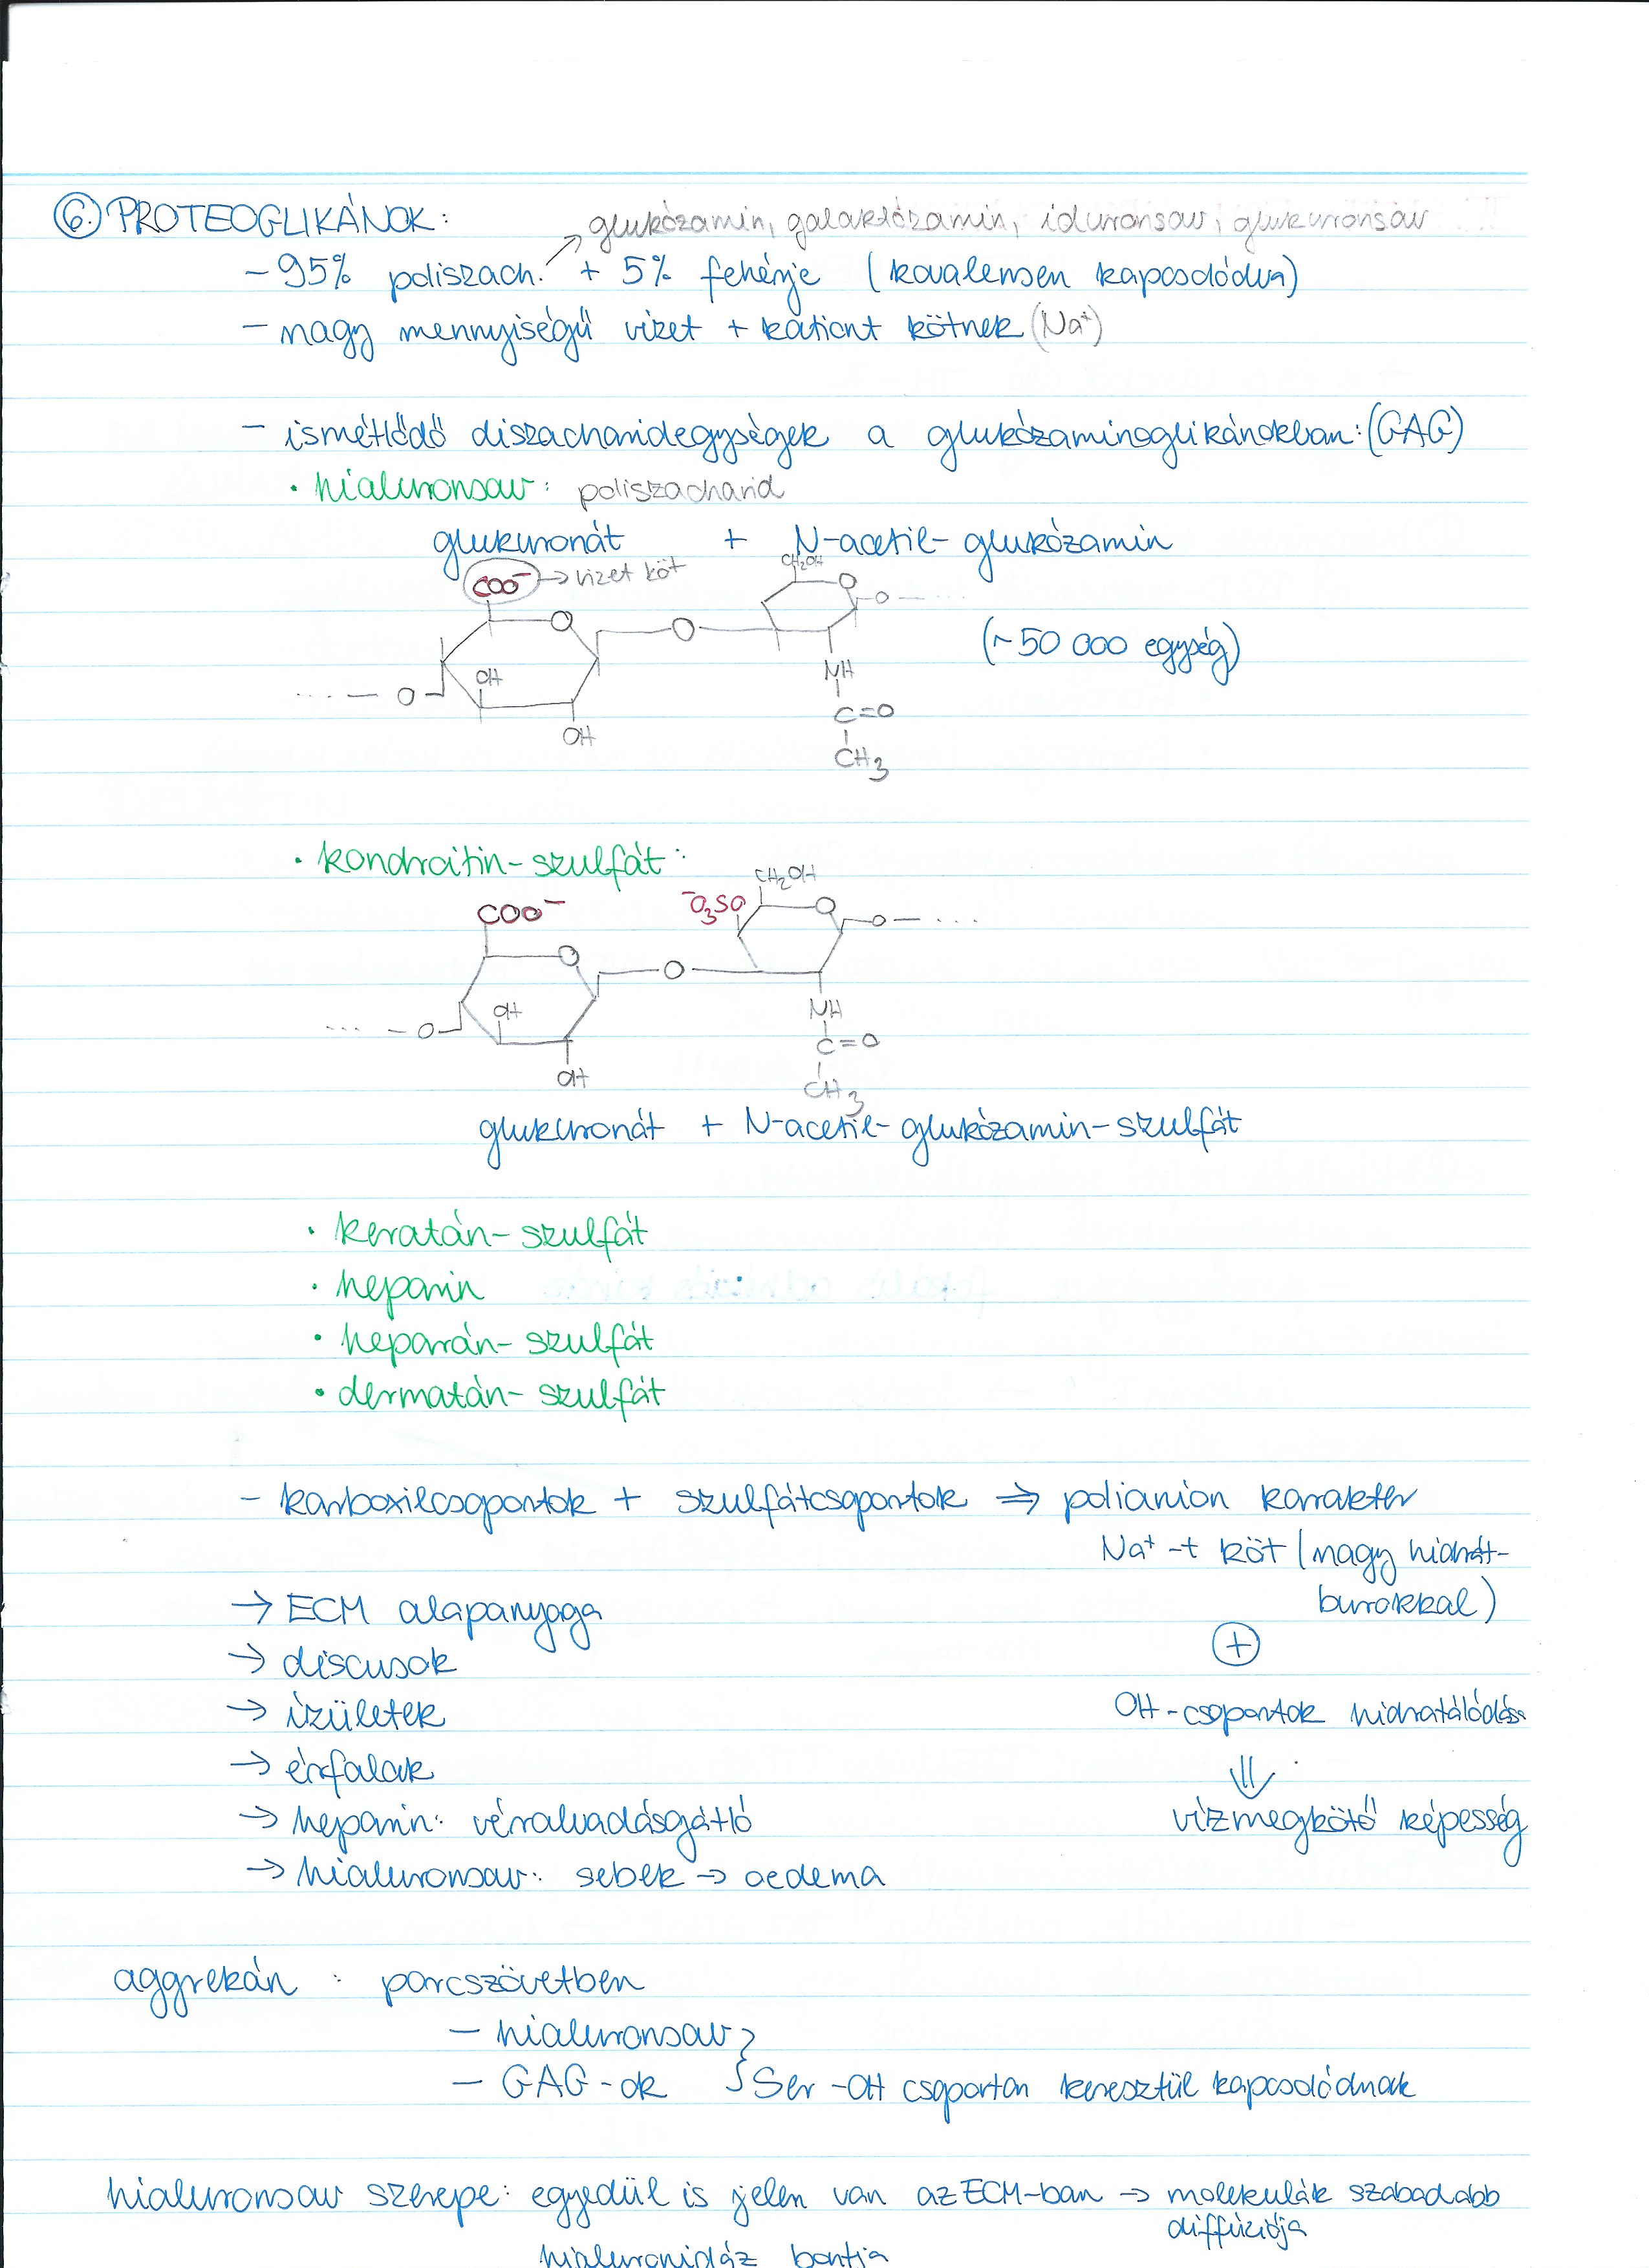 ⑥ PROTEOGLIKÁNOK:
↗ glukózamin, galaktózamin, iduronsav, glukuronsav
- 95% poliszach. + 5% fehérje (kovalensen kapcsolódva)
- nagy mennyiségű vizet + kationt kötnek (Na⁺)
- ismétlődő diszacharidegységek a glukózaminoglikánokban: (GAG)
• hialuronsav: poliszacharid
glukuronát + N-acetil-glukózamin
COO⁻ → vizet köt CH₂OH
O O O ....
O (~50 000 egység)
.... O OH NH
OH C=O
CH₃
• kondroitin-szulfát:
CH₂OH
COO⁻ ⁻O₃SO O O ....
O O
.... O OH NH
C=O
OH CH₃
glukuronát + N-acetil-glukózamin-szulfát
• keratán-szulfát
• heparin
• heparán-szulfát
• dermatán-szulfát
- karboxilcsoportok + szulfátcsoportok ⇒ polianion karakter
Na⁺-t köt (nagy hidrát-
burokkal)
→ ECM alapanyaga
⊕
→ discusok
→ izületek OH-csoportok hidratálódása
→ érfalak ⇓
→ heparin: véralvadásgátló vízmegkötő képesség
→ hialuronsav: sebek → oedema
aggrekán : porcszövetben
- hialuronsav }
- GAG-ok } Ser-OH csoporton keresztül kapcsolódnak
hialuronsav szerepe: egyedül is jelen van az ECM-ban → molekulák szabadabb
diffúziója
hialuronidáz bontja